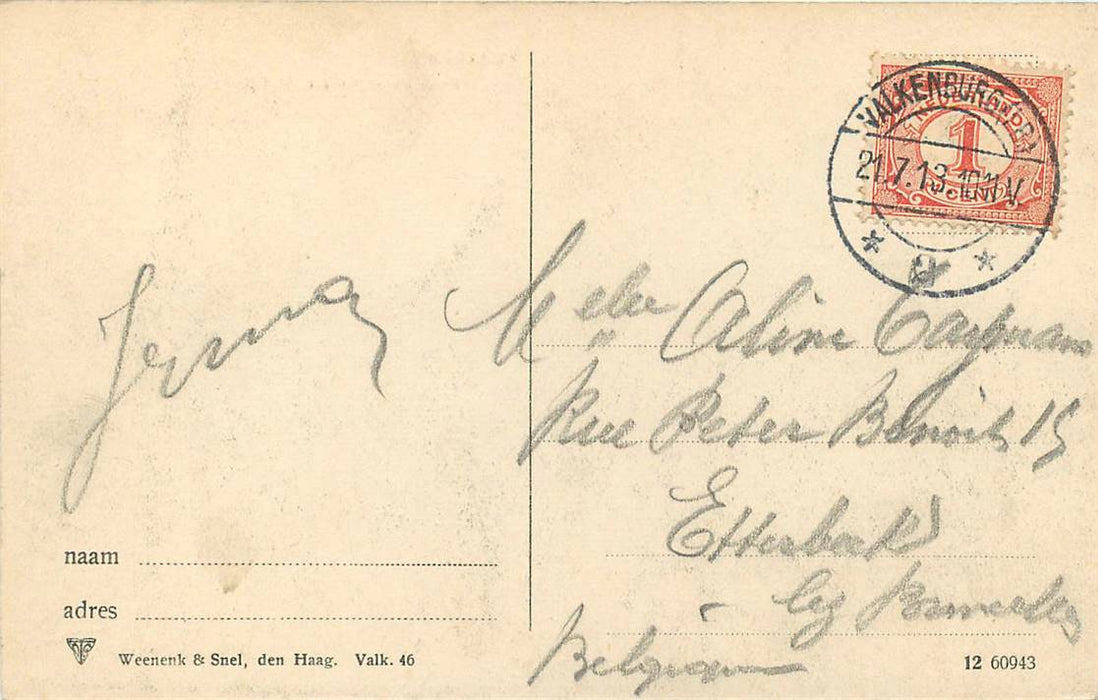 VALKENBURG
21.7.13.10-11V.
NEDERLAND
1
CENT
2
Melle Aline
Rue Peter Benoit 15
Etterbeek
Belgium
naam
adres
Weenenk & Snel, den Haag. Valk. 46
12 60943